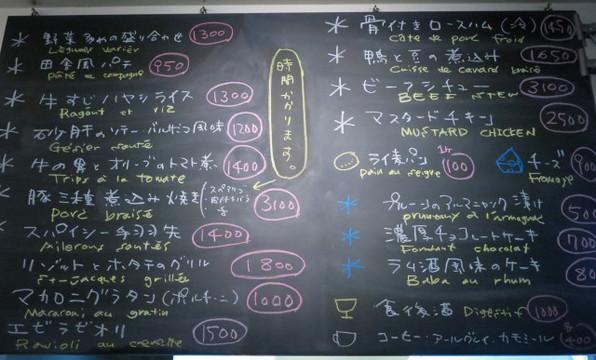 野菜の盛り合わせ 1300
Légumes variés
田舎風パテ 950
pâté de campagne
牛すじハヤシライス 1300
Ragout et riz
砂肝のソテー バルサミコ風味 1200
Gésier sauté
牛の胃とオリーブのトマト煮 1400
Trips à la tomate
豚三種煮込み焼き 3100
Porc braisé
スパイシー手羽先 1400
Ailerons sautés
リゾットとホタテのグリル 1800
St-Jacques grillée
マカロニグラタン(ポルチーニ) 1000
Macaroni au gratin
エビラビオリ 1500
Ravioli au crevette
時間かかります。
骨付きロースハム(冷) 1450
Côte de porc froid
鴨と豆の煮込み 1650
Cuisse de canard braisé
ビーフシチュー 3100
BEEF STEW
マスタードチキン 2500
MUSTARD CHICKEN
ライ麦パン 100
pain au seigle
チーズ 900
Fromage
プルーンのアルマニャック漬け 500
pruneaux à l'armagnac
濃厚チョコレートケーキ 700
Fondant chocolat
ラム酒風味のケーキ 80
Baba au rhum
食後酒 Digestif 1000
コーヒー・アールグレイ・カモミール 400